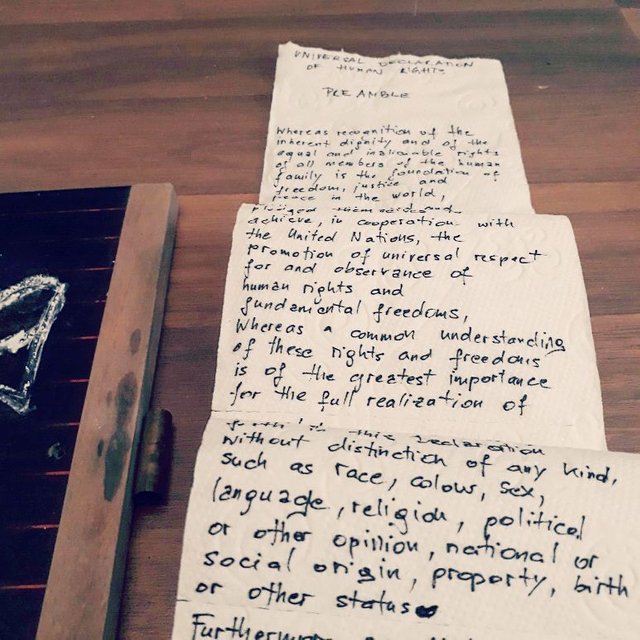 UNIVERSAL DECLARATION
OF HUMAN RIGHTS
PREAMBLE
Whereas recognition of the
inherent dignity and of the
equal and inalienable rights
of all members of the human
family is the foundation of
freedom, justice and
peace in the world,
pledged themselves
achieve, in cooperation with
the United Nations, the
promotion of universal respect
for and observance of
human rights and
fundamental freedoms,
Whereas a common understanding
of these rights and freedoms
is of the greatest importance
for the full realization of
forth in this Declaration
without distinction of any kind,
such as race, colour, sex,
language, religion, political
or other opinion, national or
social origin, property, birth
or other status.
Furthermore